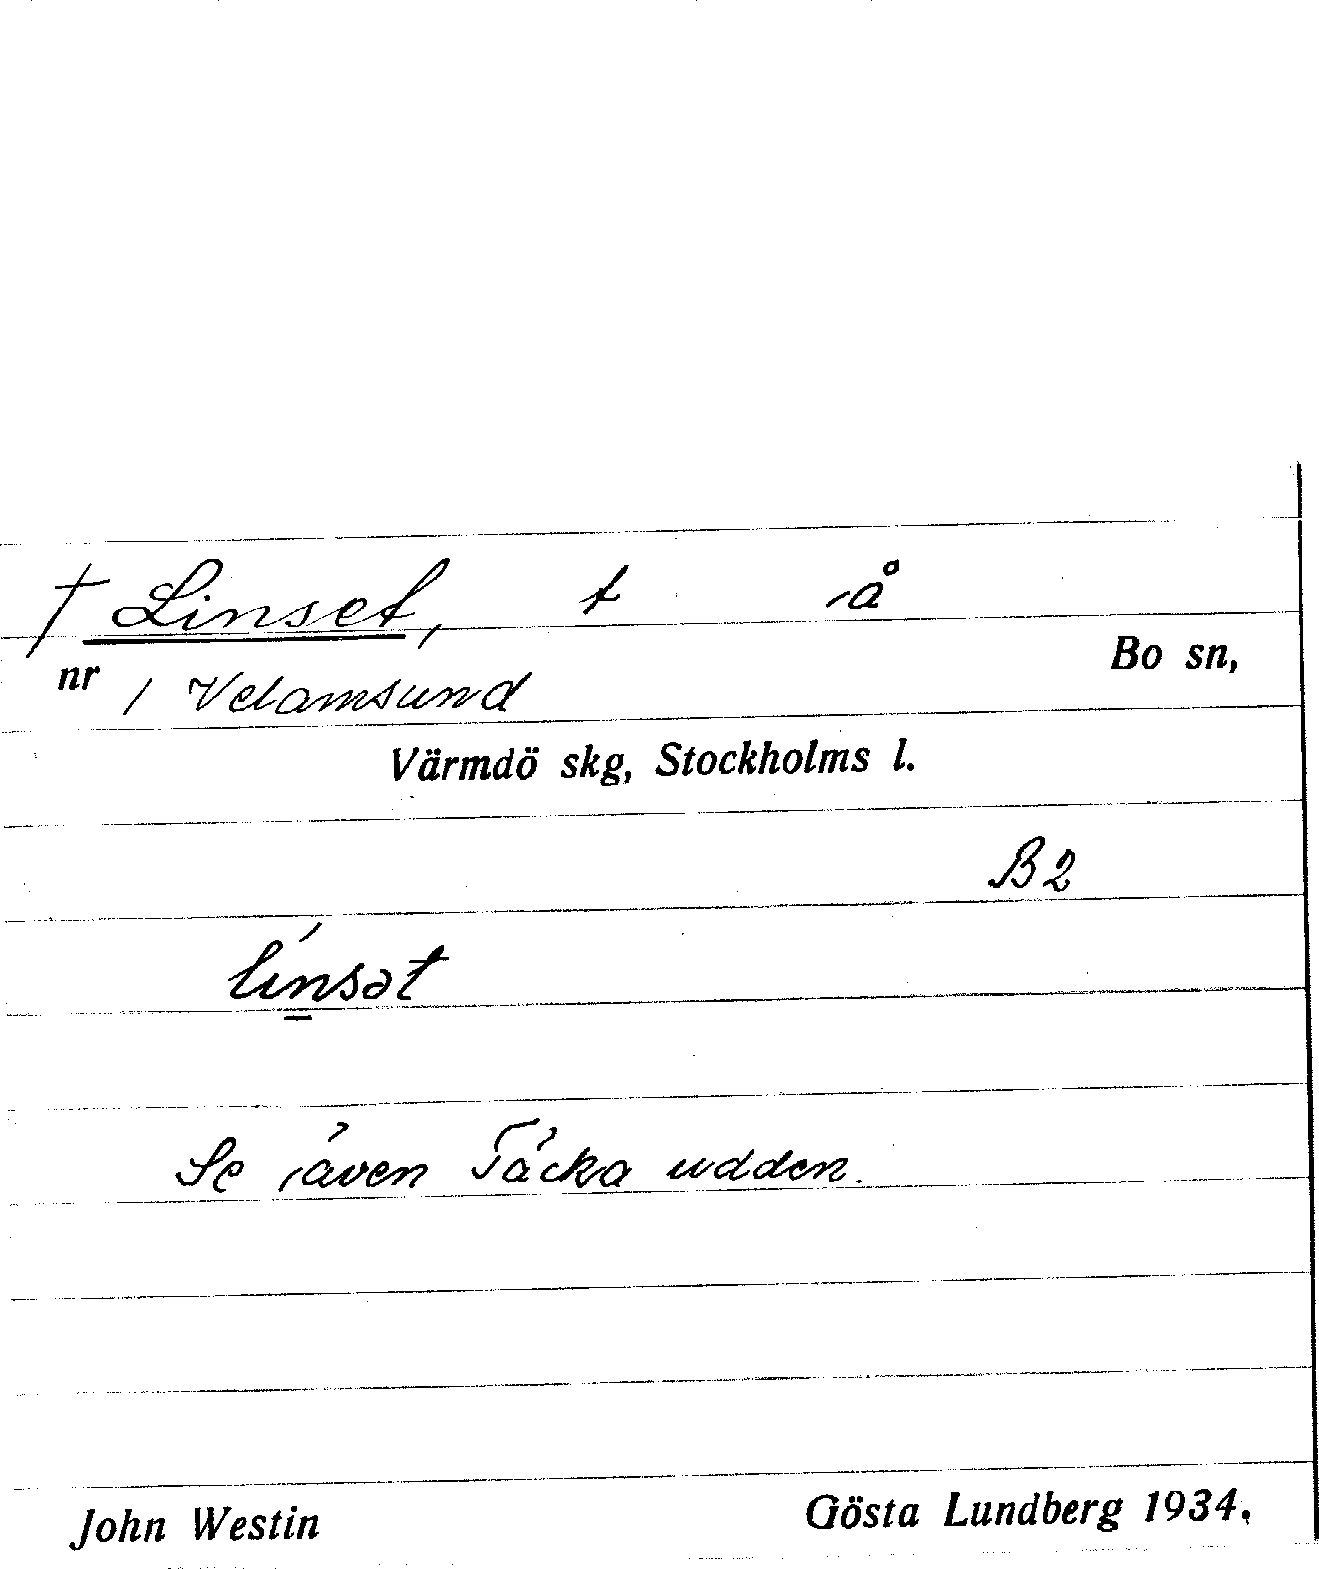 † Linset, t å
Bo sn,
nr 1 Velamsund
Värmdö skg, Stockholms l.
B2
lı́nsət
Se även Täcka udden.
John Westin Gösta Lundberg 1934.